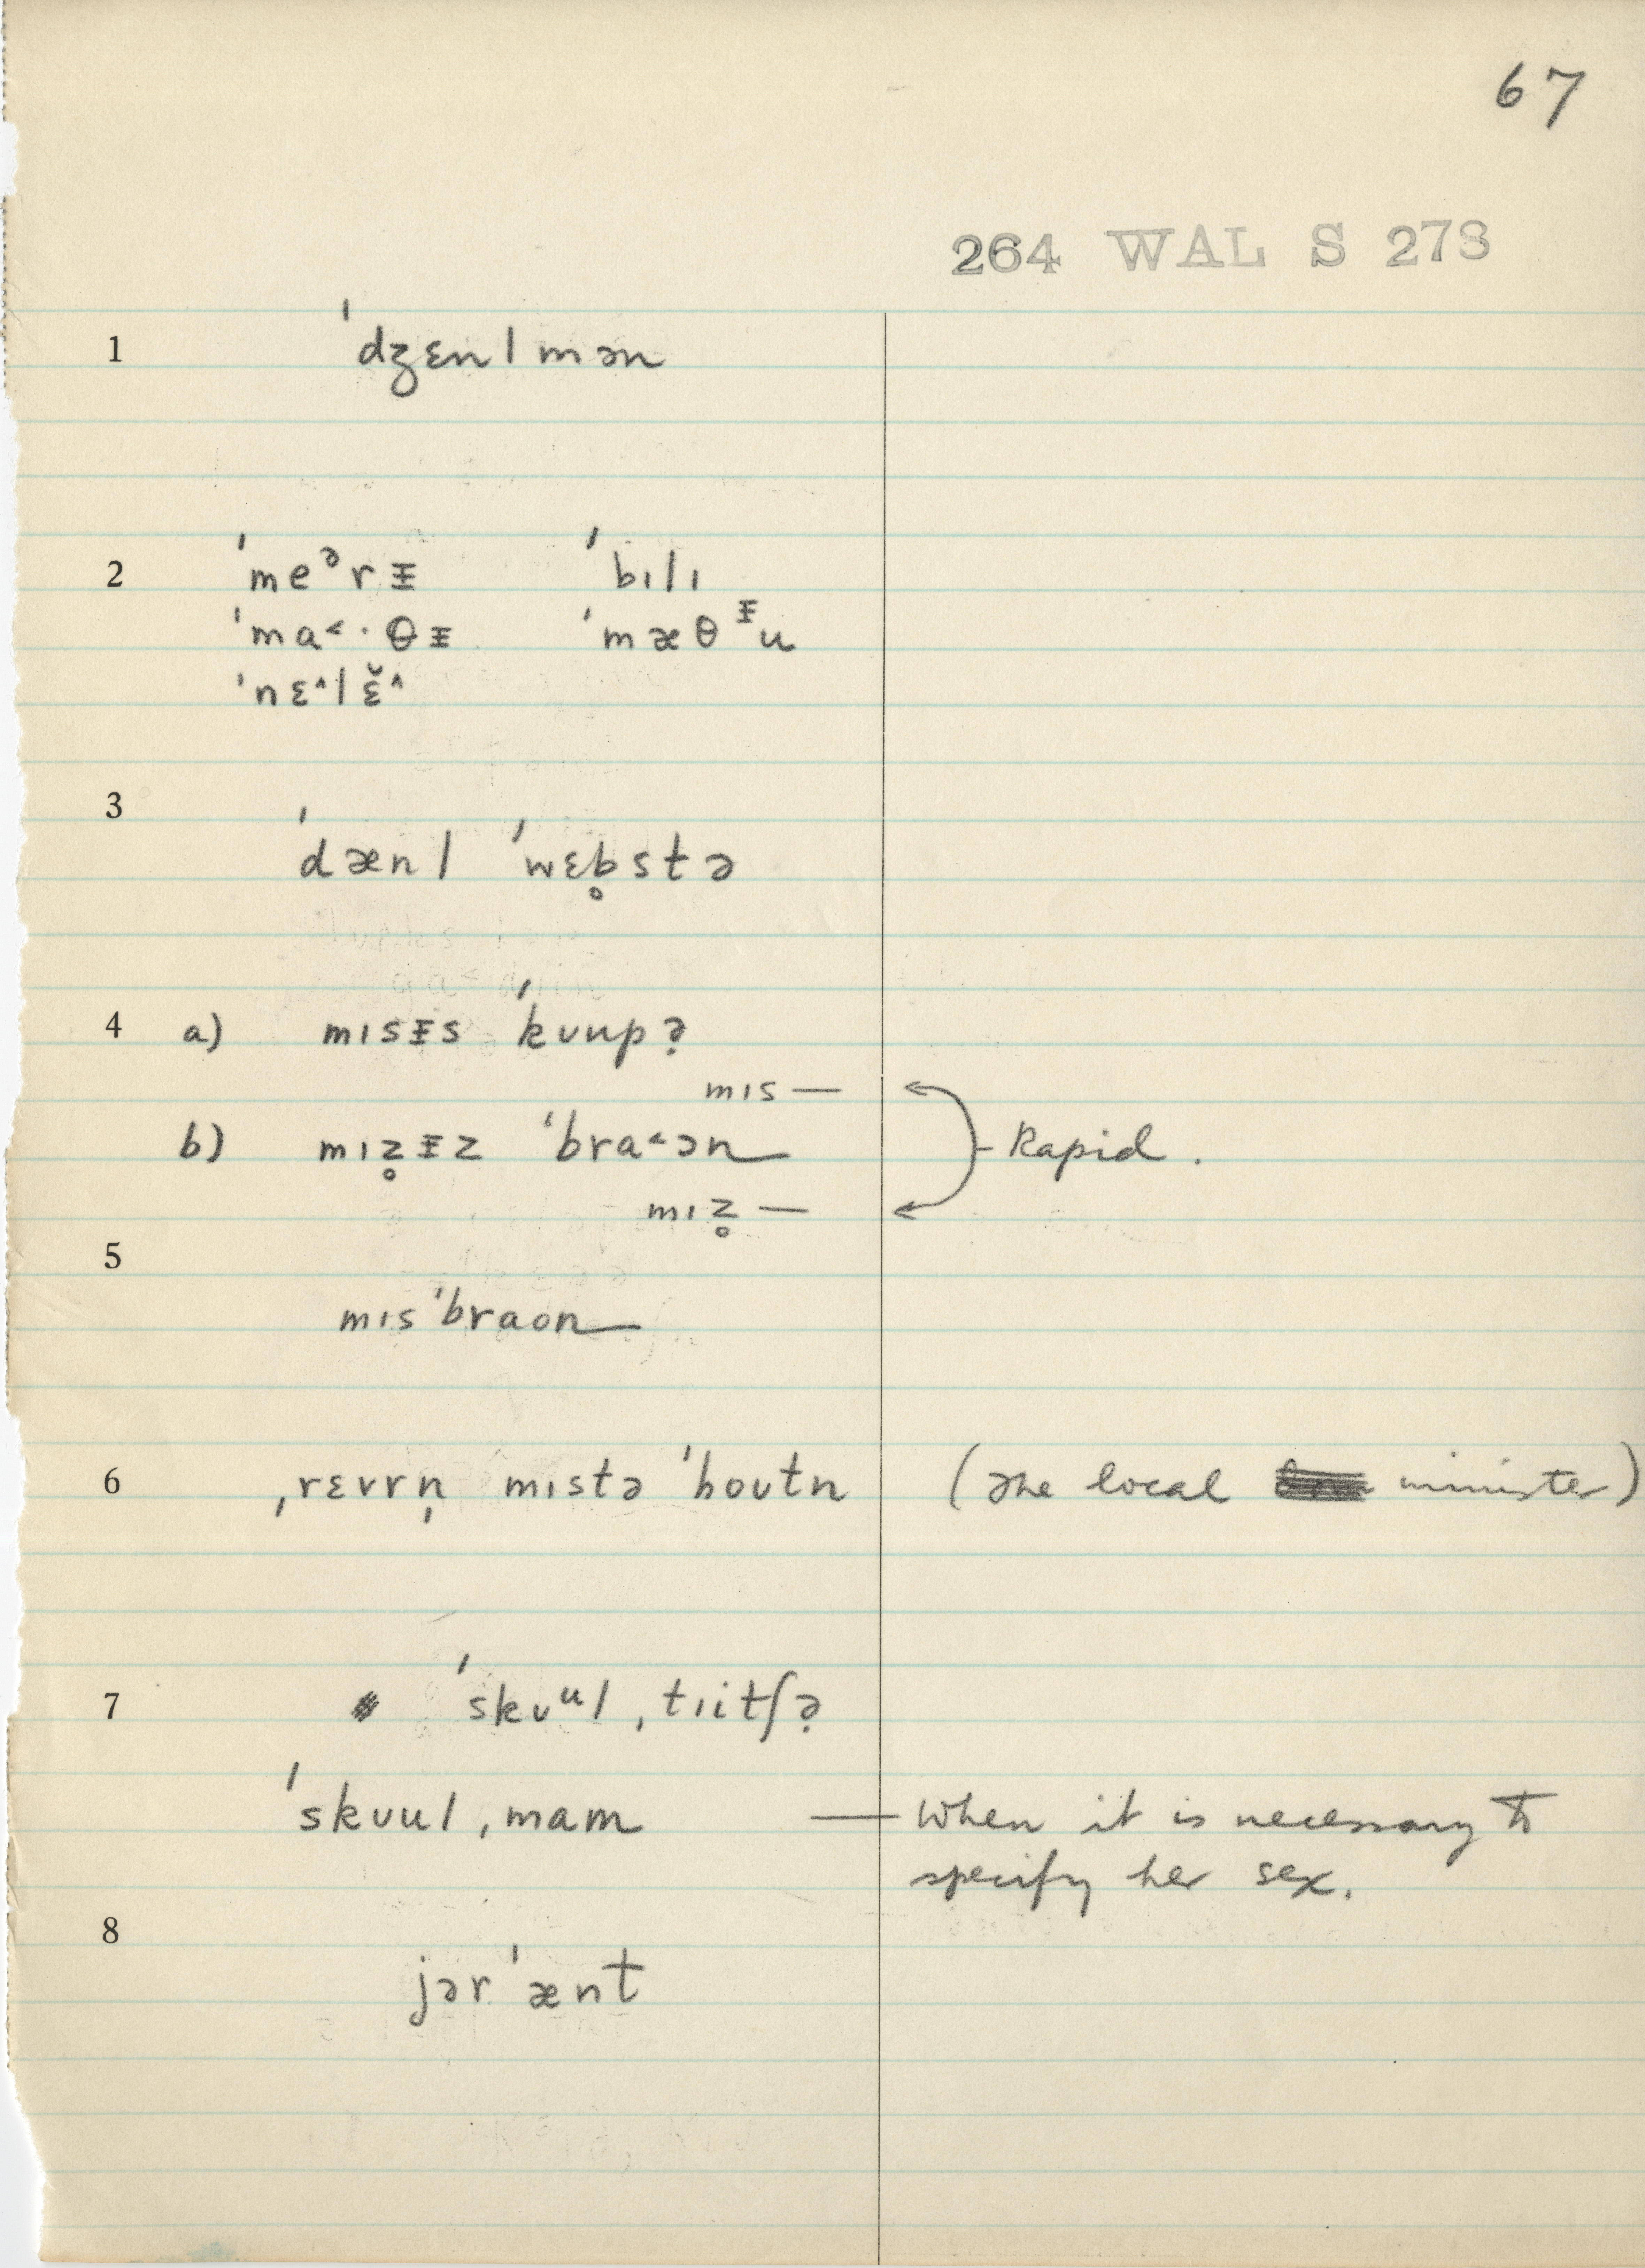 67
264 WAL S 273
1 ˈdʒɛnlmən
2 ˈmeᵊrᵻ ˈbɪlɪ
ˈma˂·θᵻ ˈmæθᵻu
ˈnɛ^lɛ̆^
3 ˈdænl ˈwɛb̥stə
4 a) mɪsᵻs ˈkʊupə̣
mɪs —
b) mɪz̥ᵻz ˈbra˂ən Rapid.
mɪz̥ —
5
mɪsˈbraon
6 ˌrɛvrn̩ mɪstə ˈhoʊtn (The local minister)
7 ˈskʊᵘl ˌtɪitʃə̣
ˈskʊul ˌmam — When it is necessary to
specify her sex.
8
jərˈænt